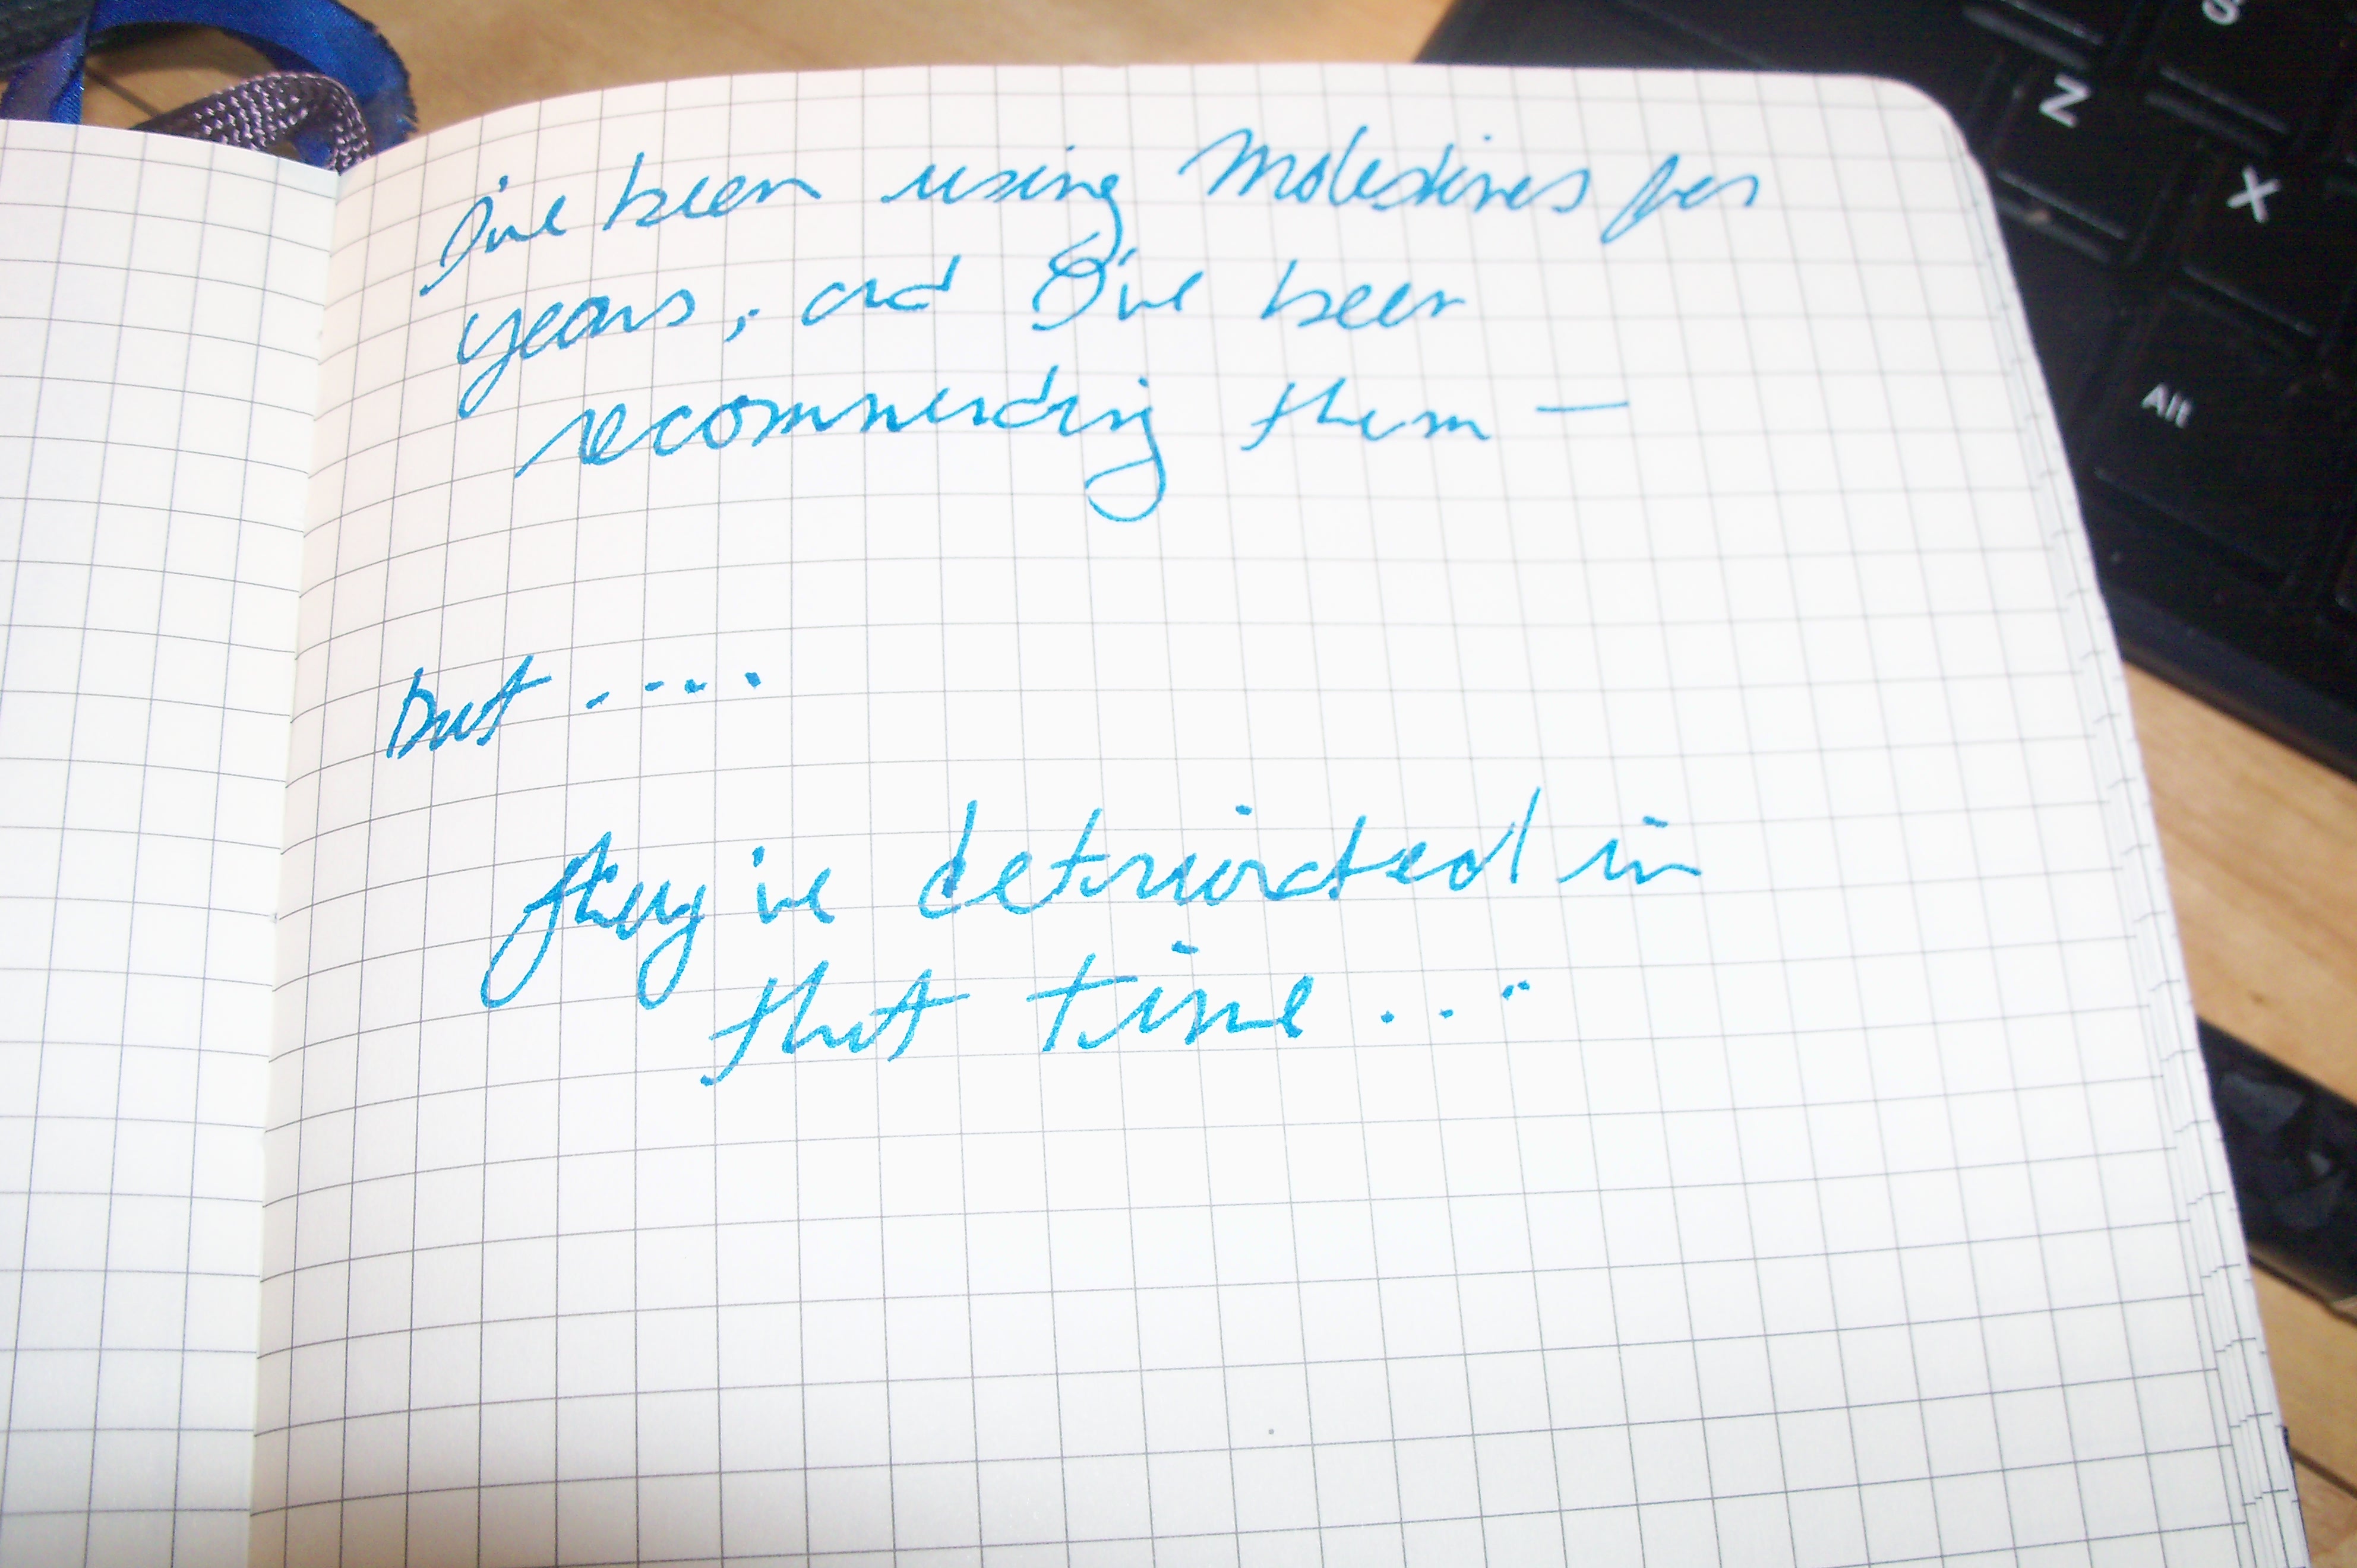 I've been using Moleskines for
years, and I've been
recommending them —
but ....
they've deteriorated in
that time ...
S
Z
X
Alt